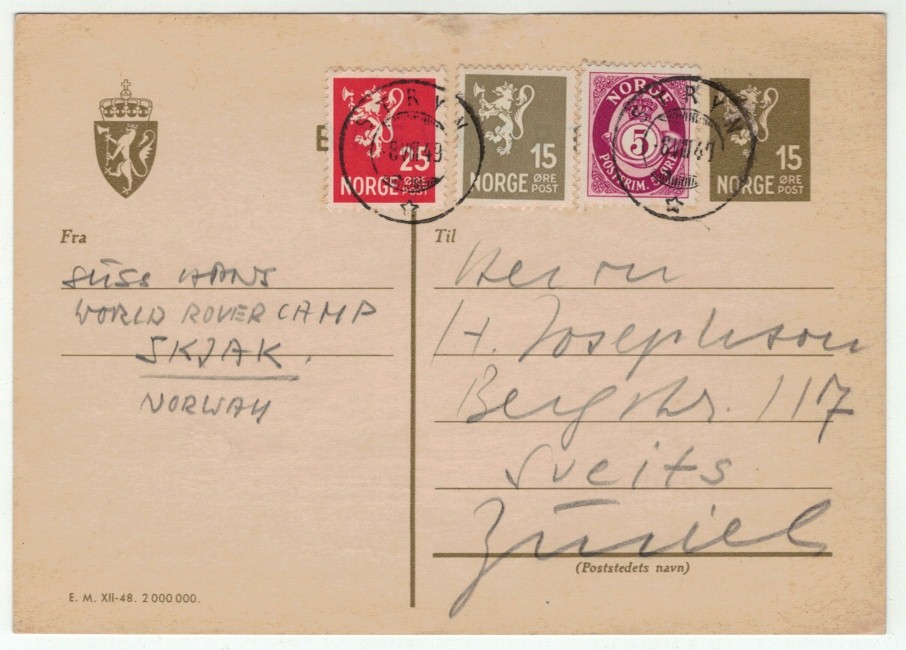 25
NORGE ØRE POST
15
NORGE ØRE POST
NORGE
5
POSTFRIM. 5 ØRE
15
NORGE ØRE POST
Fra
SÜSS HANS
WORLD ROVER CAMP
SKJAK.
NORWAY
Til
Herrn
H. Josephson
Bergstr. 117
Sveits
Zürich
(Poststedets navn)
E. M. XII-48. 2 000 000.